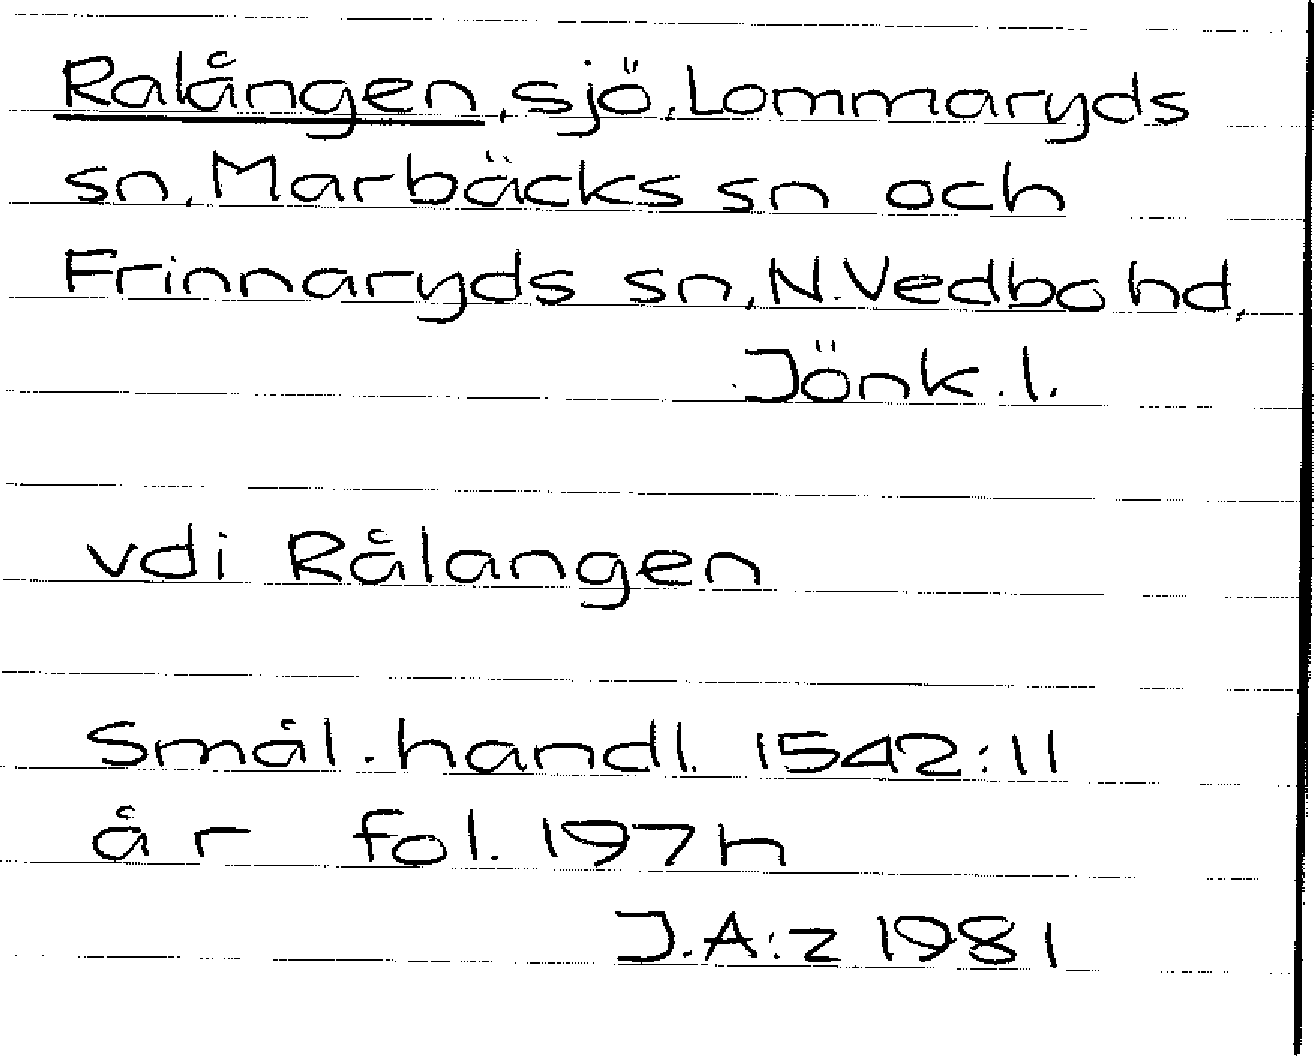 Ralången, sjö, Lommaryds
sn, Marbäcks sn och
Frinnaryds sn, N. Vedbo hd,
Jönk. l.
vdi Rålangen
Smål. handl. 1542:11
år fol. 197 h
J.A:z 1981